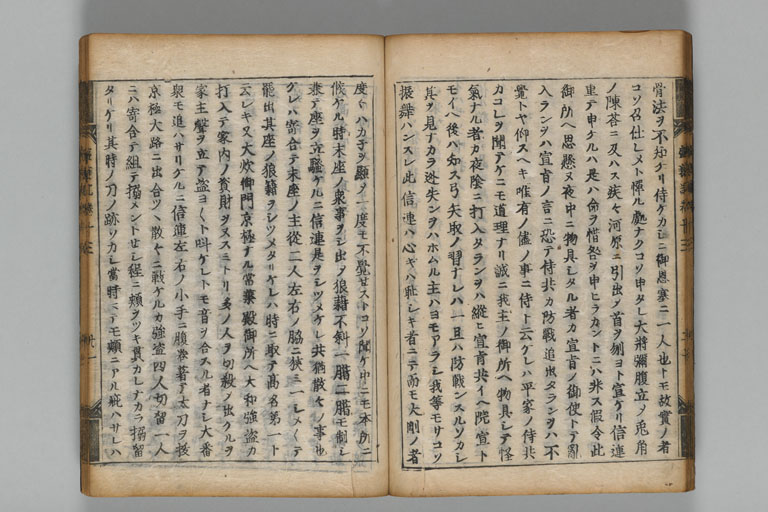 骨法ヲ不知リ侍ケカシニ御恩寨ニ一人也トモ故實ノ者
コソ召仕レメト憚ル處ナクコソ申タレ大將彌腹立ノ兎角
ノ陳答ニ及ハス疾々河原ニ引出ノ首ヲ刎ヨト宣ケリ信連
重テ申ケルハ是ハ命ヲ惜咎ヲ申ヒラカントニハ非ス假令此
御所ヘ思懸ヌ夜中ニ物具シタル者カ宣旨ノ御使トテ乱
入ランヲハ宣旨ノ言ニ恐テ侍共カ防戰追出タランヲハ不
覺トヤ仰スヘキ唯有ノ儘ノ事ニ侍ト云ケレハ平家ノ侍共
カコレヲ聞アケニモ道理ナリ誠ニ我主ノ御所ヘ物具シテ怪
氣ナル者カ夜陰ニ打入タランヲハ縱ヒ宣旨共イヘ院宣ト
モイヘ後ハ知ス弓矢取ノ習ナレハ一旦ハ防戰ンスルソカシ
其ヲ見ナカラ迯失ンヲハホムル主ハヨモアラシ我等モサコソ
振舞ハンスレ此信連ハ心キハ恥シキ者ニテ而モ大剛ノ者
度々ハカ子ヲ顯ノ一度モ不覺セストコソ聞ケ中ニモ本所ニ
候ケル時末座ノ衆事ヲシ出ノ狼藉不斜一臈二臈モ制シ
兼テ座ヲ立騒ケルニ信連是ヲシツメケレ共猶散々ノ事也
ケレハ寄合テ末座ノ主從二人左右ノ脇ニ挾三一シメ〱テ
罷出其座ノ狼藉ヲシツメタリケレハ時ニ取テ高名第一ト
云レキ又大炊御門京極ナル常葉殿御所ヘ大和強盗カ
打入テ家内ノ資財ヲヌスミトリ多ノ人ヲ切殺ノ出クルヲ
家主聲ヲ立テ盗ヨ〱ト叫ケレトモ音ヲ合スル者ナシ大番
衆モ進ハサリケルニ信連左右ノ小手ニ腹巻著テ太刀ヲ拔
京極大路ニ出合ツヽ散々ニ戰ケルカ強盗四人切留一人
ニハ寄合テ組テ搦メントせシ程ニ頬ヲツキ貫カレナカラ搦留
タリケリ其時ノ刀ノ跡ソカシ當時ニテモ頬ニアル疵ハサレハ